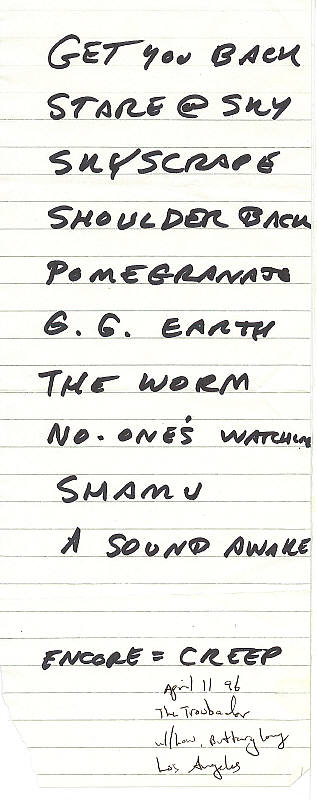 GET YOU BACK
STARE @ SKY
SKYSCRAPE
SHOULDER BACK
POMEGRANATE
G. G. EARTH
THE WORM
NO. ONE'S WATCHING
SHAMU
A SOUND AWAKE
ENCORE = CREEP
April 11 96
The Troubador
w/ Low,
Los Angeles